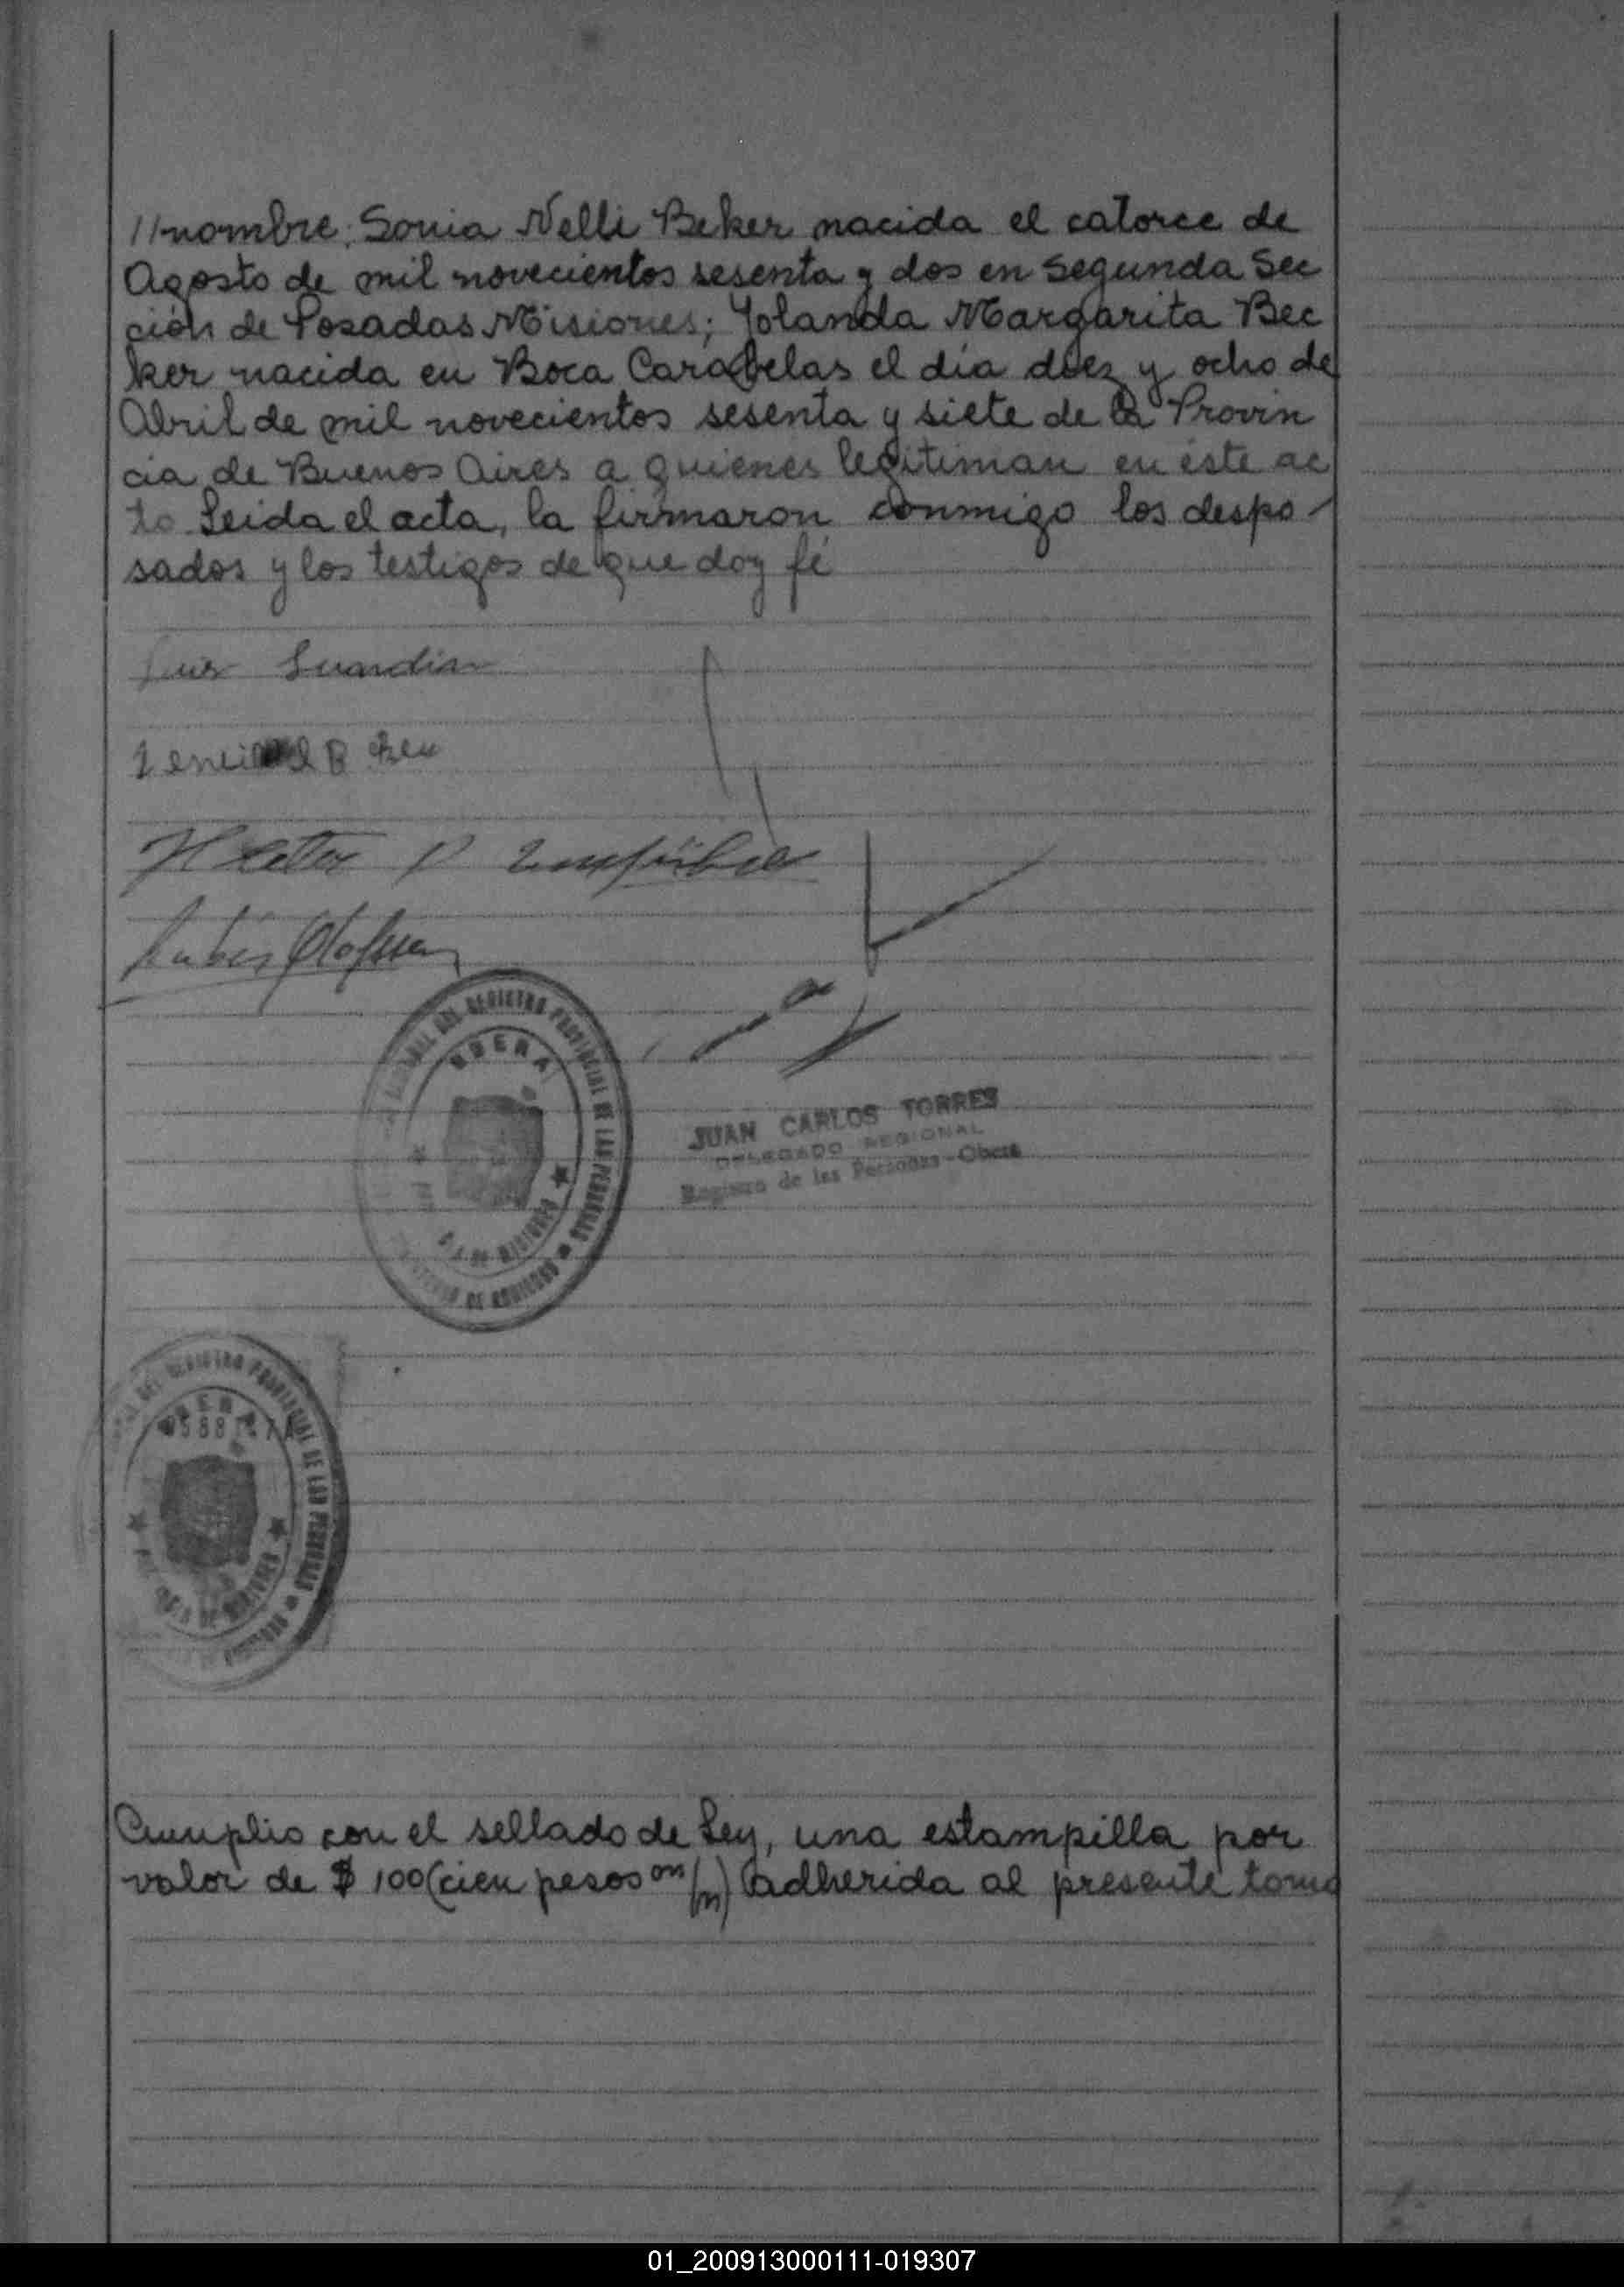 //nombre; Sonia Nelli Beker nacida el catorce de
Agosto de mil novecientos sesenta y dos en Segunda Sec
ción de Posadas Misiones; Yolanda Margarita Bec
ker nacida en Boca Carabelas el día diez y ocho de
Abril de mil novecientos sesenta y siete de la Provin
cia de Buenos Aires a quienes legitiman en éste ac
to Leida el acta, la firmaron conmigo los despo-
sados y los testigos de que doy fé
Luis
Hector
Rubén Olofsson
REGISTRO PROVINCIAL DE LAS PERSONAS
OBERA
DE MISIONES
JUAN CARLOS TORRES
DELEGADO REGIONAL
Registro de las Personas - Oberá
DEL REGISTRO PROVINCIAL DE LAS PERSONAS
OBERA
DE MISIONES
Cumplio con el sellado de Ley, una estampilla por
valor de $ 100 (cien pesos m/n) adherida al presente tomo
01_200913000111-019307